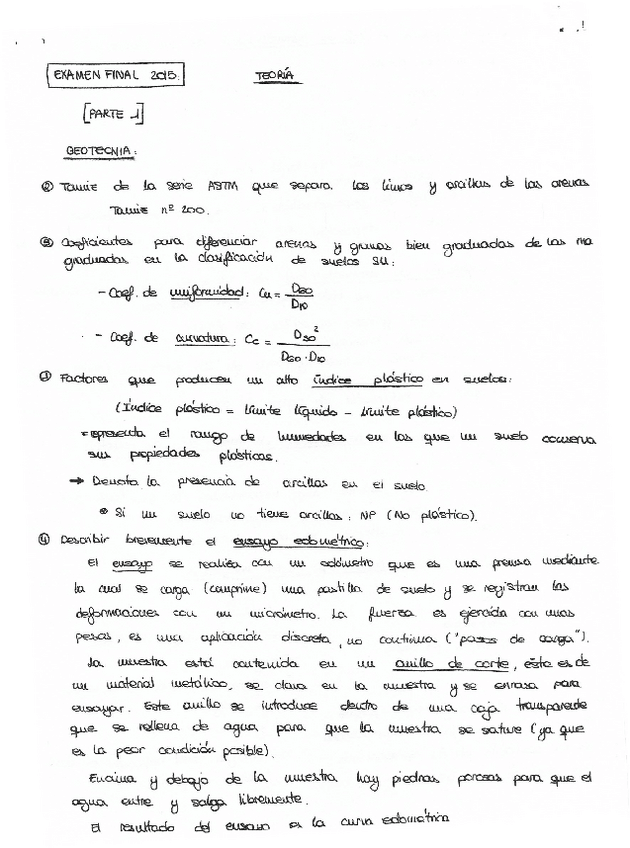 EXAMEN FINAL 2015. TEORÍA
[PARTE 1]
GEOTECNIA:
② Tamiz de la serie ASTM que separa los limos y arcillas de las arenas
Tamiz nº 200.
③ Coeficientes para diferenciar arenas y gravas bien graduadas de las ma
graduadas en la clasificación de suelos SU:
- Coef. de uniformidad: Cu = D60 / D10
- Coef. de curvatura: Cc = D30² / D60 · D10
① Factores que producen un alto índice plástico en suelos:
(Índice plástico = Límite líquido - Límite plástico)
representa el rango de humedades en los que un suelo conserva
sus propiedades plásticas.
→ Denota la presencia de arcillas en el suelo.
• Si un suelo no tiene arcillas: NP (No plástico).
④ Describir brevemente el ensayo edométrico:
El ensayo se realiza con un edómetro que es una prensa mediante
la cual se carga (comprime) una pastilla de suelo y se registran las
deformaciones con un micrómetro. La fuerza es ejercida con unas
pesas, es una aplicación discreta, no continua ("pasos de carga").
La muestra está contenida en un anillo de corte, éste es de
un material metálico, se clava en la muestra y se enrasa para
ensayar. Este anillo se introduce dentro de una caja transparente
que se rellena de agua para que la muestra se sature (ya que
es la peor condición posible).
Encima y debajo de la muestra hay piedras porosas para que el
agua entre y salga libremente.
El resultado del ensayo es la curva edométrica